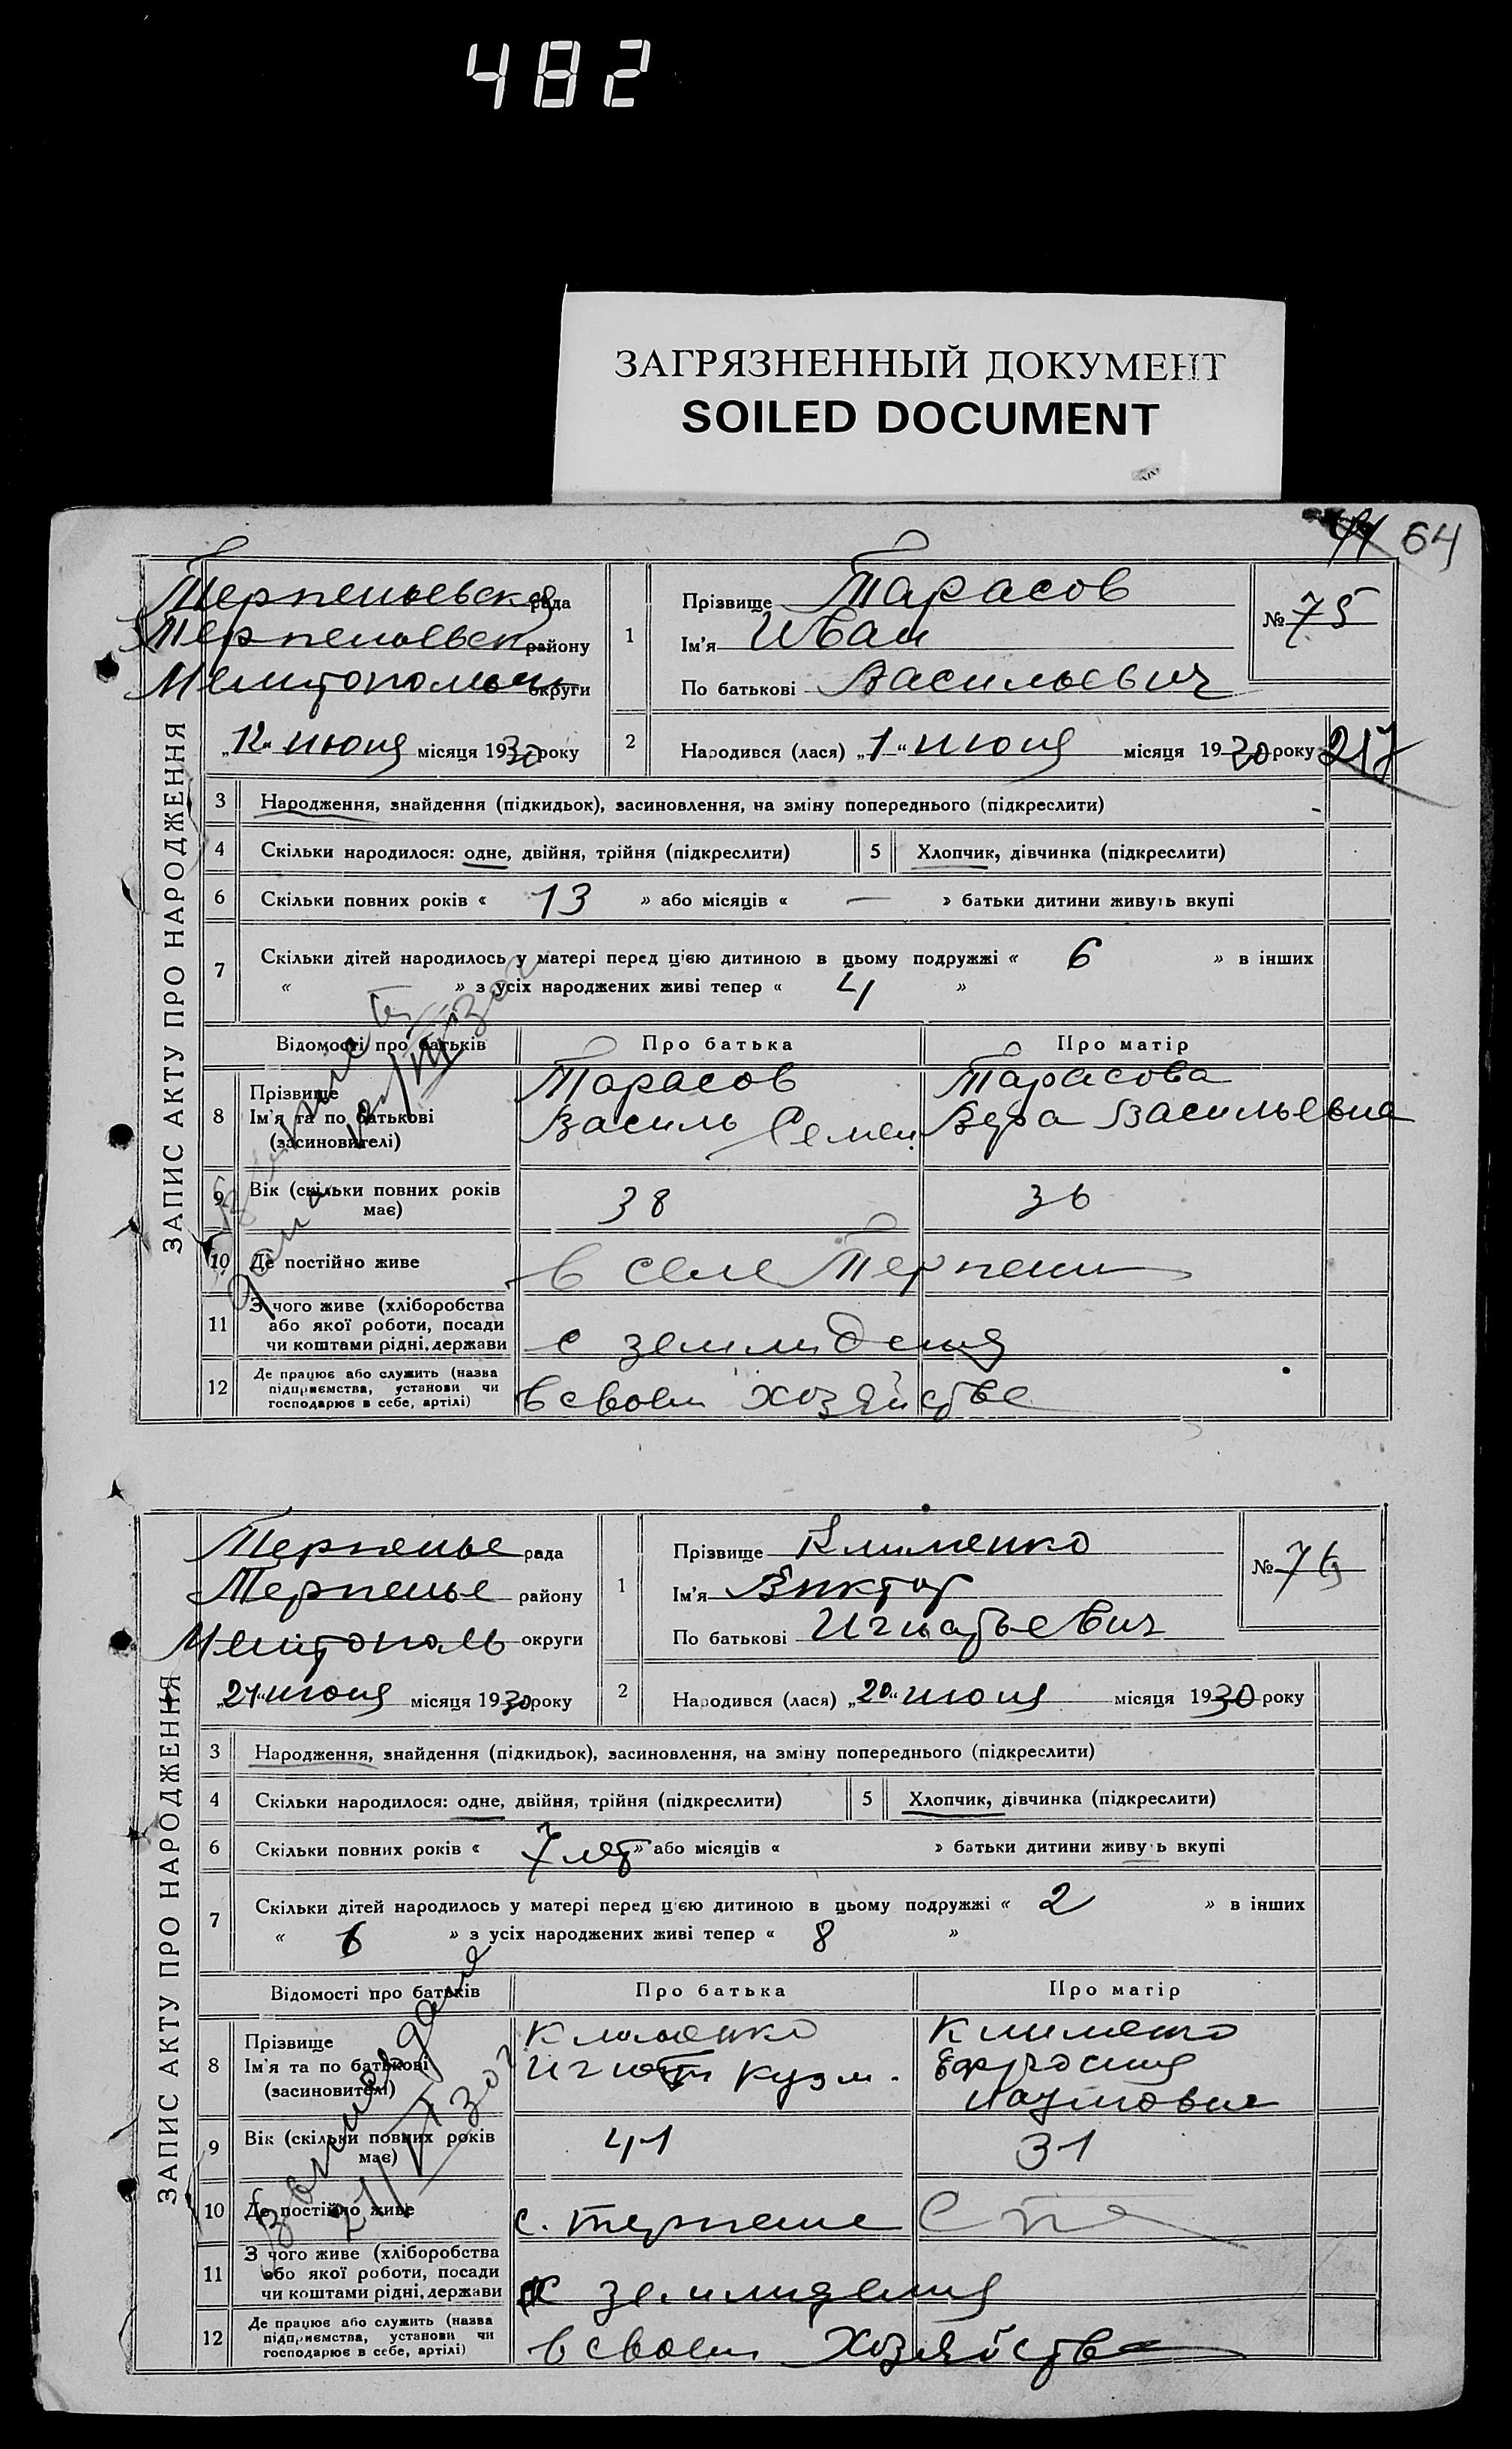 482
ЗАГРЯЗНЕННЫЙ ДОКУМЕНТ
SOILED DOCUMENT
64
ЗАПИС АКТУ ПРО НАРОДЖЕННЯ
Терпеньевская рада
Терпеньевск району
Мелитопольск округи
„12“ июня місяця 1930 року
1 Прізвище Тарасов
Ім'я Иван
По батькові Васильевич
№ 75
2 Народився (лася) „1“ июня місяця 1930 року
217
3 Народження, знайдення (підкидьок), засиновлення, на зміну попереднього (підкреслити)
4 Скільки народилося: одне, двійня, трійня (підкреслити) 5 Хлопчик, дівчинка (підкреслити)
6 Скільки повних років « 13 » або місяців « — » батьки дитини живуть вкупі
7 Скільки дітей народилось у матері перед цією дитиною в цьому подружжі « 6 » в інших
« » з усіх народжених живі тепер « 4 »
Відомості про батьків Про батька Про матір
8 Прізвище Тарасов Тарасова
Ім'я та по батькові Василь Семен. Вера Васильевна
(засиновителі)
9 Вік (скільки повних років має) 38 36
10 Де постійно живе в селе Терпени
11 З чого живе (хліборобства
або якої роботи, посади
чи коштами рідні, держави с землиделия
12 Де працює або служить (назва
підприємства, установи чи
господарює в себе, артілі) в своем хозяйстве
ЗАПИС АКТУ ПРО НАРОДЖЕННЯ
Терпенье рада
Терпенье району
Мелитополь округи
„21“ июня місяця 1930 року
1 Прізвище Клименко
Ім'я Виктор
По батькові Игнатьевич
№ 76
2 Народився (лася) „20“ июня місяця 1930 року
3 Народження, знайдення (підкидьок), засиновлення, на зміну попереднього (підкреслити)
4 Скільки народилося: одне, двійня, трійня (підкреслити) 5 Хлопчик, дівчинка (підкреслити)
6 Скільки повних років « 7 лет » або місяців « » батьки дитини живуть вкупі
7 Скільки дітей народилось у матері перед цією дитиною в цьому подружжі « 2 » в інших
« 6 » з усіх народжених живі тепер « 8 »
Відомості про батьків Про батька Про матір
8 Прізвище Клименко Клименко
Ім'я та по батькові Игнат Кузм. Ефросиния
(засиновителі) Наумовна
9 Вік (скільки повних років має) 41 31
10 Де постійно живе с. Терпение
11 З чого живе (хліборобства
або якої роботи, посади
чи коштами рідні, держави землиделия
12 Де працює або служить (назва
підприємства, установи чи
господарює в себе, артілі) в своем хозяйстве